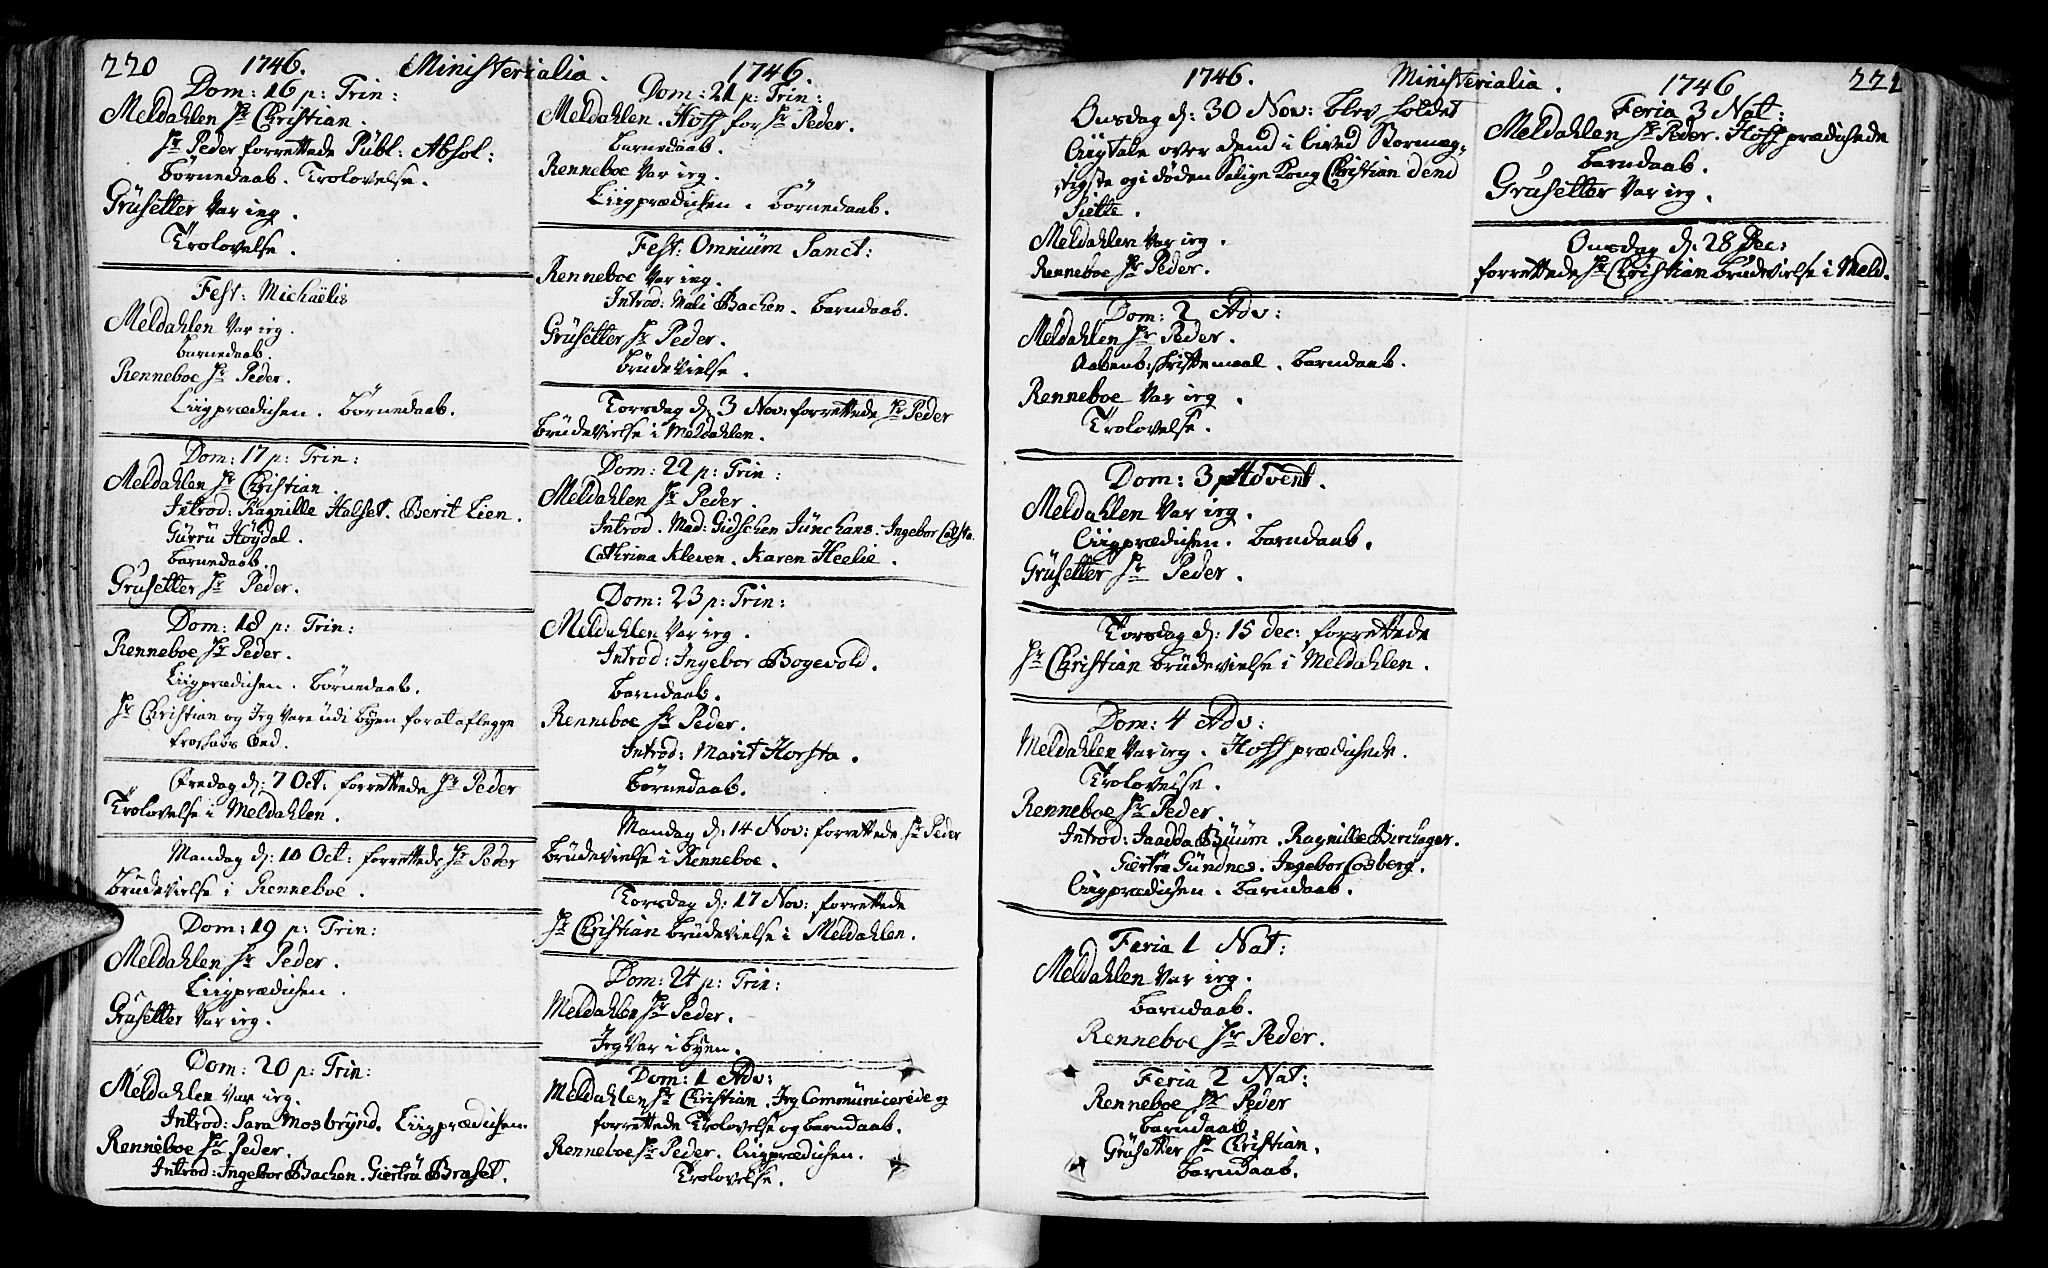 220 1746. Ministerialia. 1746.
Dom: 16 p: Trin:
Meldahlen Hr Christian.
Hr Peder forrettede Publ: Absol:
Børnedaab. Trolovelse.
Grüsetter Var ieg.
Trolovelse.
Fest: Michaëlis
Meldahlen Var ieg.
barnedaab.
Renneboe Hr Peder.
Liigprædichen. Børnedaab.
Dom: 17 p: Trin:
Meldahlen Hr Christian
Introd: Ragnille Halset. Berit Lien.
Gürrü Høydal.
barnedaab.
Grüsetter Hr Peder.
Dom: 18 p: Trin:
Renneboe Hr Peder.
Liigprædichen. børnedaab.
Hr Christian og Jeg Vare üdi byen for at aflegge
troskabs Eed.
Fredag d: 7 Oct: forrettede Hr Peder
Trolovelse i Meldahlen.
Mandag d: 10 Oct: forrettede Hr Peder
brüdevielse i Renneboe.
Dom: 19 p: Trin:
Meldahlen Hr Peder.
Liigprædichen.
Grüsetter Var ieg.
Dom: 20 p: Trin:
Meldahlen Var ieg.
Introd: Sara Mosbrynd. Liigprædichen.
Renneboe Hr Peder.
Introd: Ingebor Bachen. Giertrü Braset.
Dom: 21 p: Trin:
Meldahlen. Hoff for Hr Peder.
barnedaab.
Renneboe Var ieg.
Liigprædichen. Børnedaab.
Fest: Omnium Sanct:
Renneboe Var ieg.
Introd: Mali Bachen. barnedaab.
Grüsetter Hr Peder.
brüdevielse.
Torsdag d: 3 Nov: forrettede Hr Peder
brüdevielse i Meldahlen.
Dom: 22 p: Trin:
Meldahlen Hr Peder.
Introd. Mad: Gidschen Jünchans. Ingebor
Cathrina Kleven. Karen Heelie.
Dom: 23 p: Trin:
Meldahlen Var ieg.
Introd: Ingebor Bogevold.
barndaab.
Renneboe Hr Peder.
Introd: Marit Horsta.
Børnedaab.
Mandag d: 14 Nov: forrettede Hr Peder
brüdevielse i Renneboe.
Torsdag d: 17 Nov: forrettede
Hr Christian brüdevielse i Meldahlen.
Dom: 24 p: Trin:
Meldahlen Hr Peder.
Jeg Var i byen.
Dom: 1 Adv:
Meldahlen Hr Christian. Jeg Communicerede og
forrettede Trolovelse og barndaab.
Renneboe Hr Peder. Liigprædichen.
Trolovelse.
1746. Ministerialia. 1746 221
Onsdag d: 30 Nov: blev holdet
Liigtale over dend i Lived Stormæg-
tigste og i døden Salige Kong Christian dend
Siette.
Meldahlen Var ieg.
Renneboe Hr Peder.
Dom: 2 Adv:
Meldahlen Hr Peder.
Aabenb: skriftemaal. barndaab.
Renneboe Var ieg.
Trolovelse.
Dom: 3 Advent.
Meldahlen Var ieg.
Liigprædichen. barndaab.
Grüsetter Hr Peder.
Torsdag d: 15 dec: forrettede
Hr Christian brüdevielse i Meldahlen.
Dom: 4 Adv:
Meldahlen Var ieg. Hoff prædichede.
Trolovelse.
Renneboe Hr Peder.
Introd: Jaadda Büum. Ragnille Birchager.
Giertrü Gündnes. Ingebor Cosberg.
Liigprædichen. barndaab.
Feria 1 Nat:
Meldahlen Var ieg.
barndaab.
Renneboe Hr Peder.
Feria 2 Nat:
Renneboe Hr Peder
barndaab.
Grüsetter Hr Christian.
barndaab.
Feria 3 Nat:
Meldahlen Hr Peder. Hoff prædichede
barndaab.
Grüsetter Var ieg.
Onsdag d: 28 Dec:
forrettede Hr Christian brüdevielse i Meld.